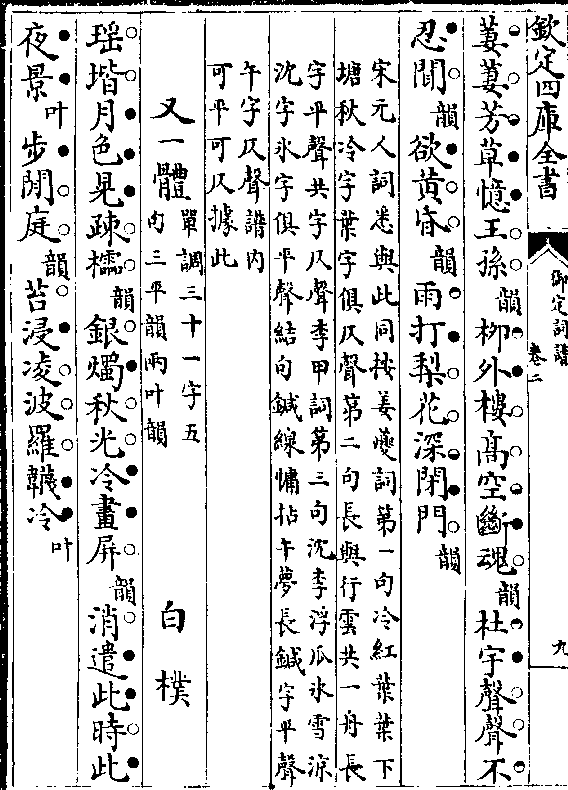 欽定四庫全書
御定詞譜
卷二
九
萋萋芳草憶王孫韻柳外樓髙空斷魂韻杜宇聲聲不
忍聞韻欲黄昏韻雨打梨花深閉門韻
宋元人詞悉與此同按姜夔詞第一句冷紅葉葉下
塘秋冷字葉字俱仄聲第二句長與行雲共一舟長
字平聲共字仄聲李甲詞第三句沈李浮瓜氷雪涼
沈字氷字俱平聲結句鍼線慵拈午夢長鍼字平聲
午字仄聲譜内
可平可仄據此
又一體 單調三十一字五
句三平韻兩叶韻 白樸
瑶堦月色晃疎櫺韻銀燭秋光冷畫屏韻消遣此時此
夜景叶步閒庭韻苔浸凌波羅韈冷叶